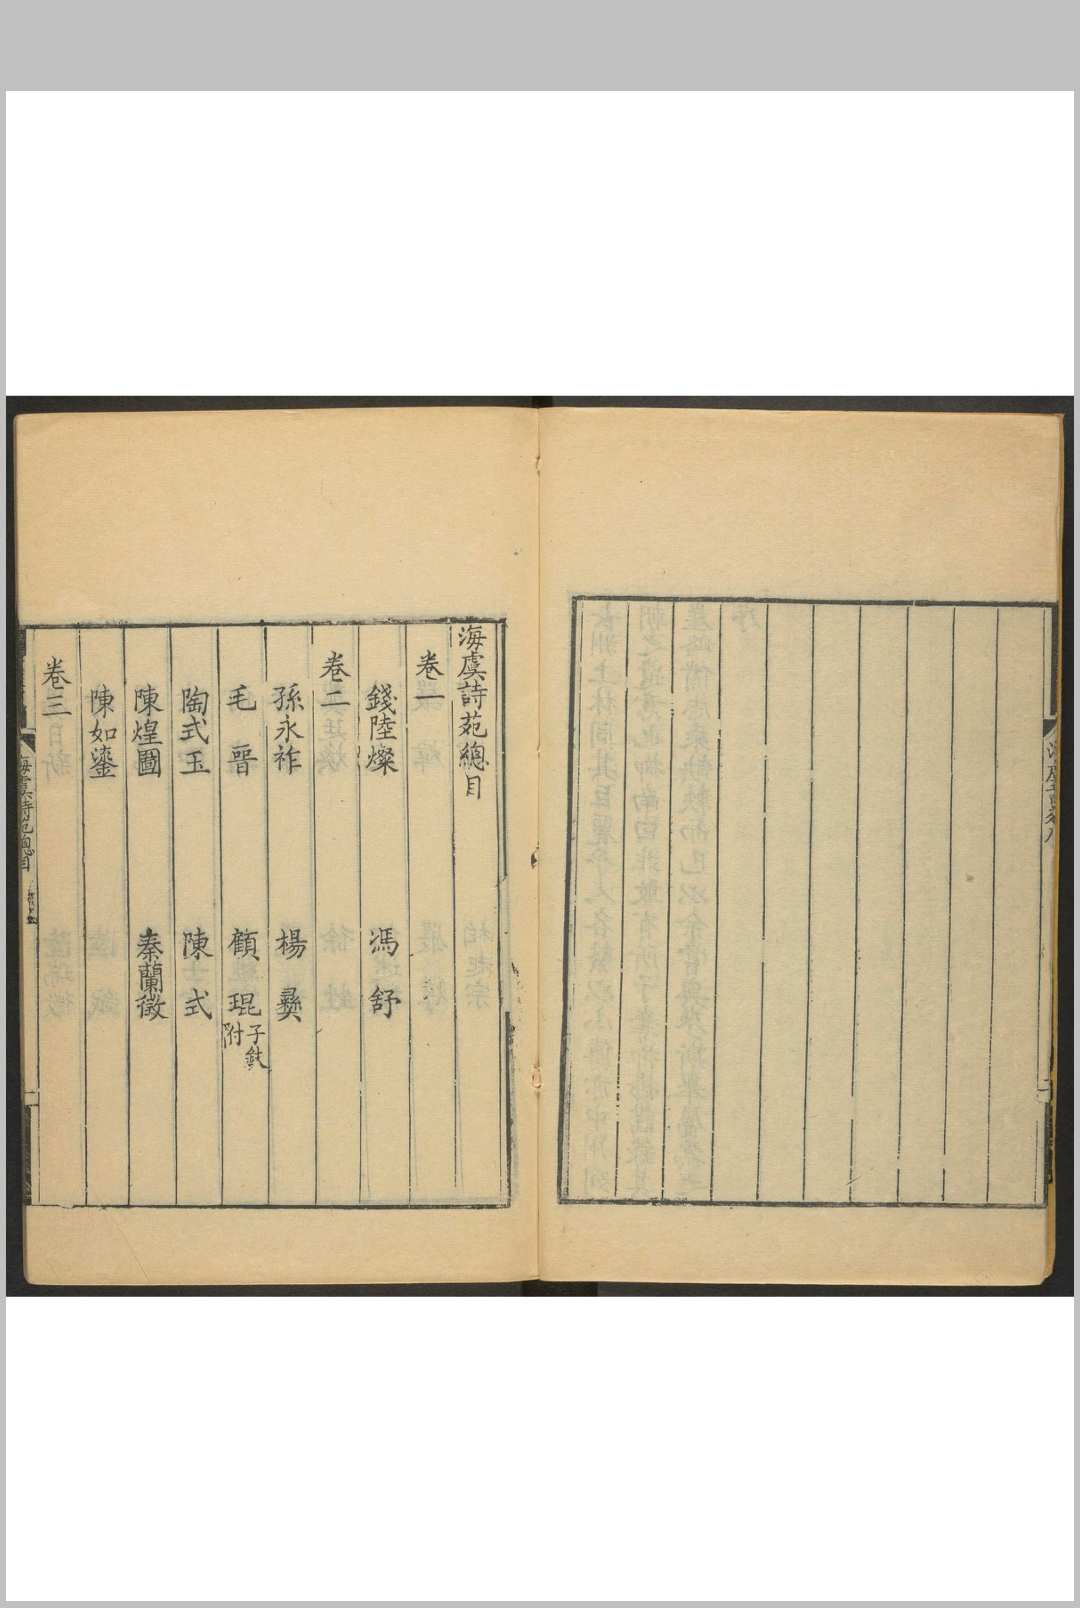 海虞詩苑總目
卷一
錢陸燦 馮舒
卷二
孫永祚 楊彝
毛晉 顧琨 子釴附
陶式玉 陳式
陳煌圖 秦蘭徵
陳如鎏
卷三
海虞詩苑總目